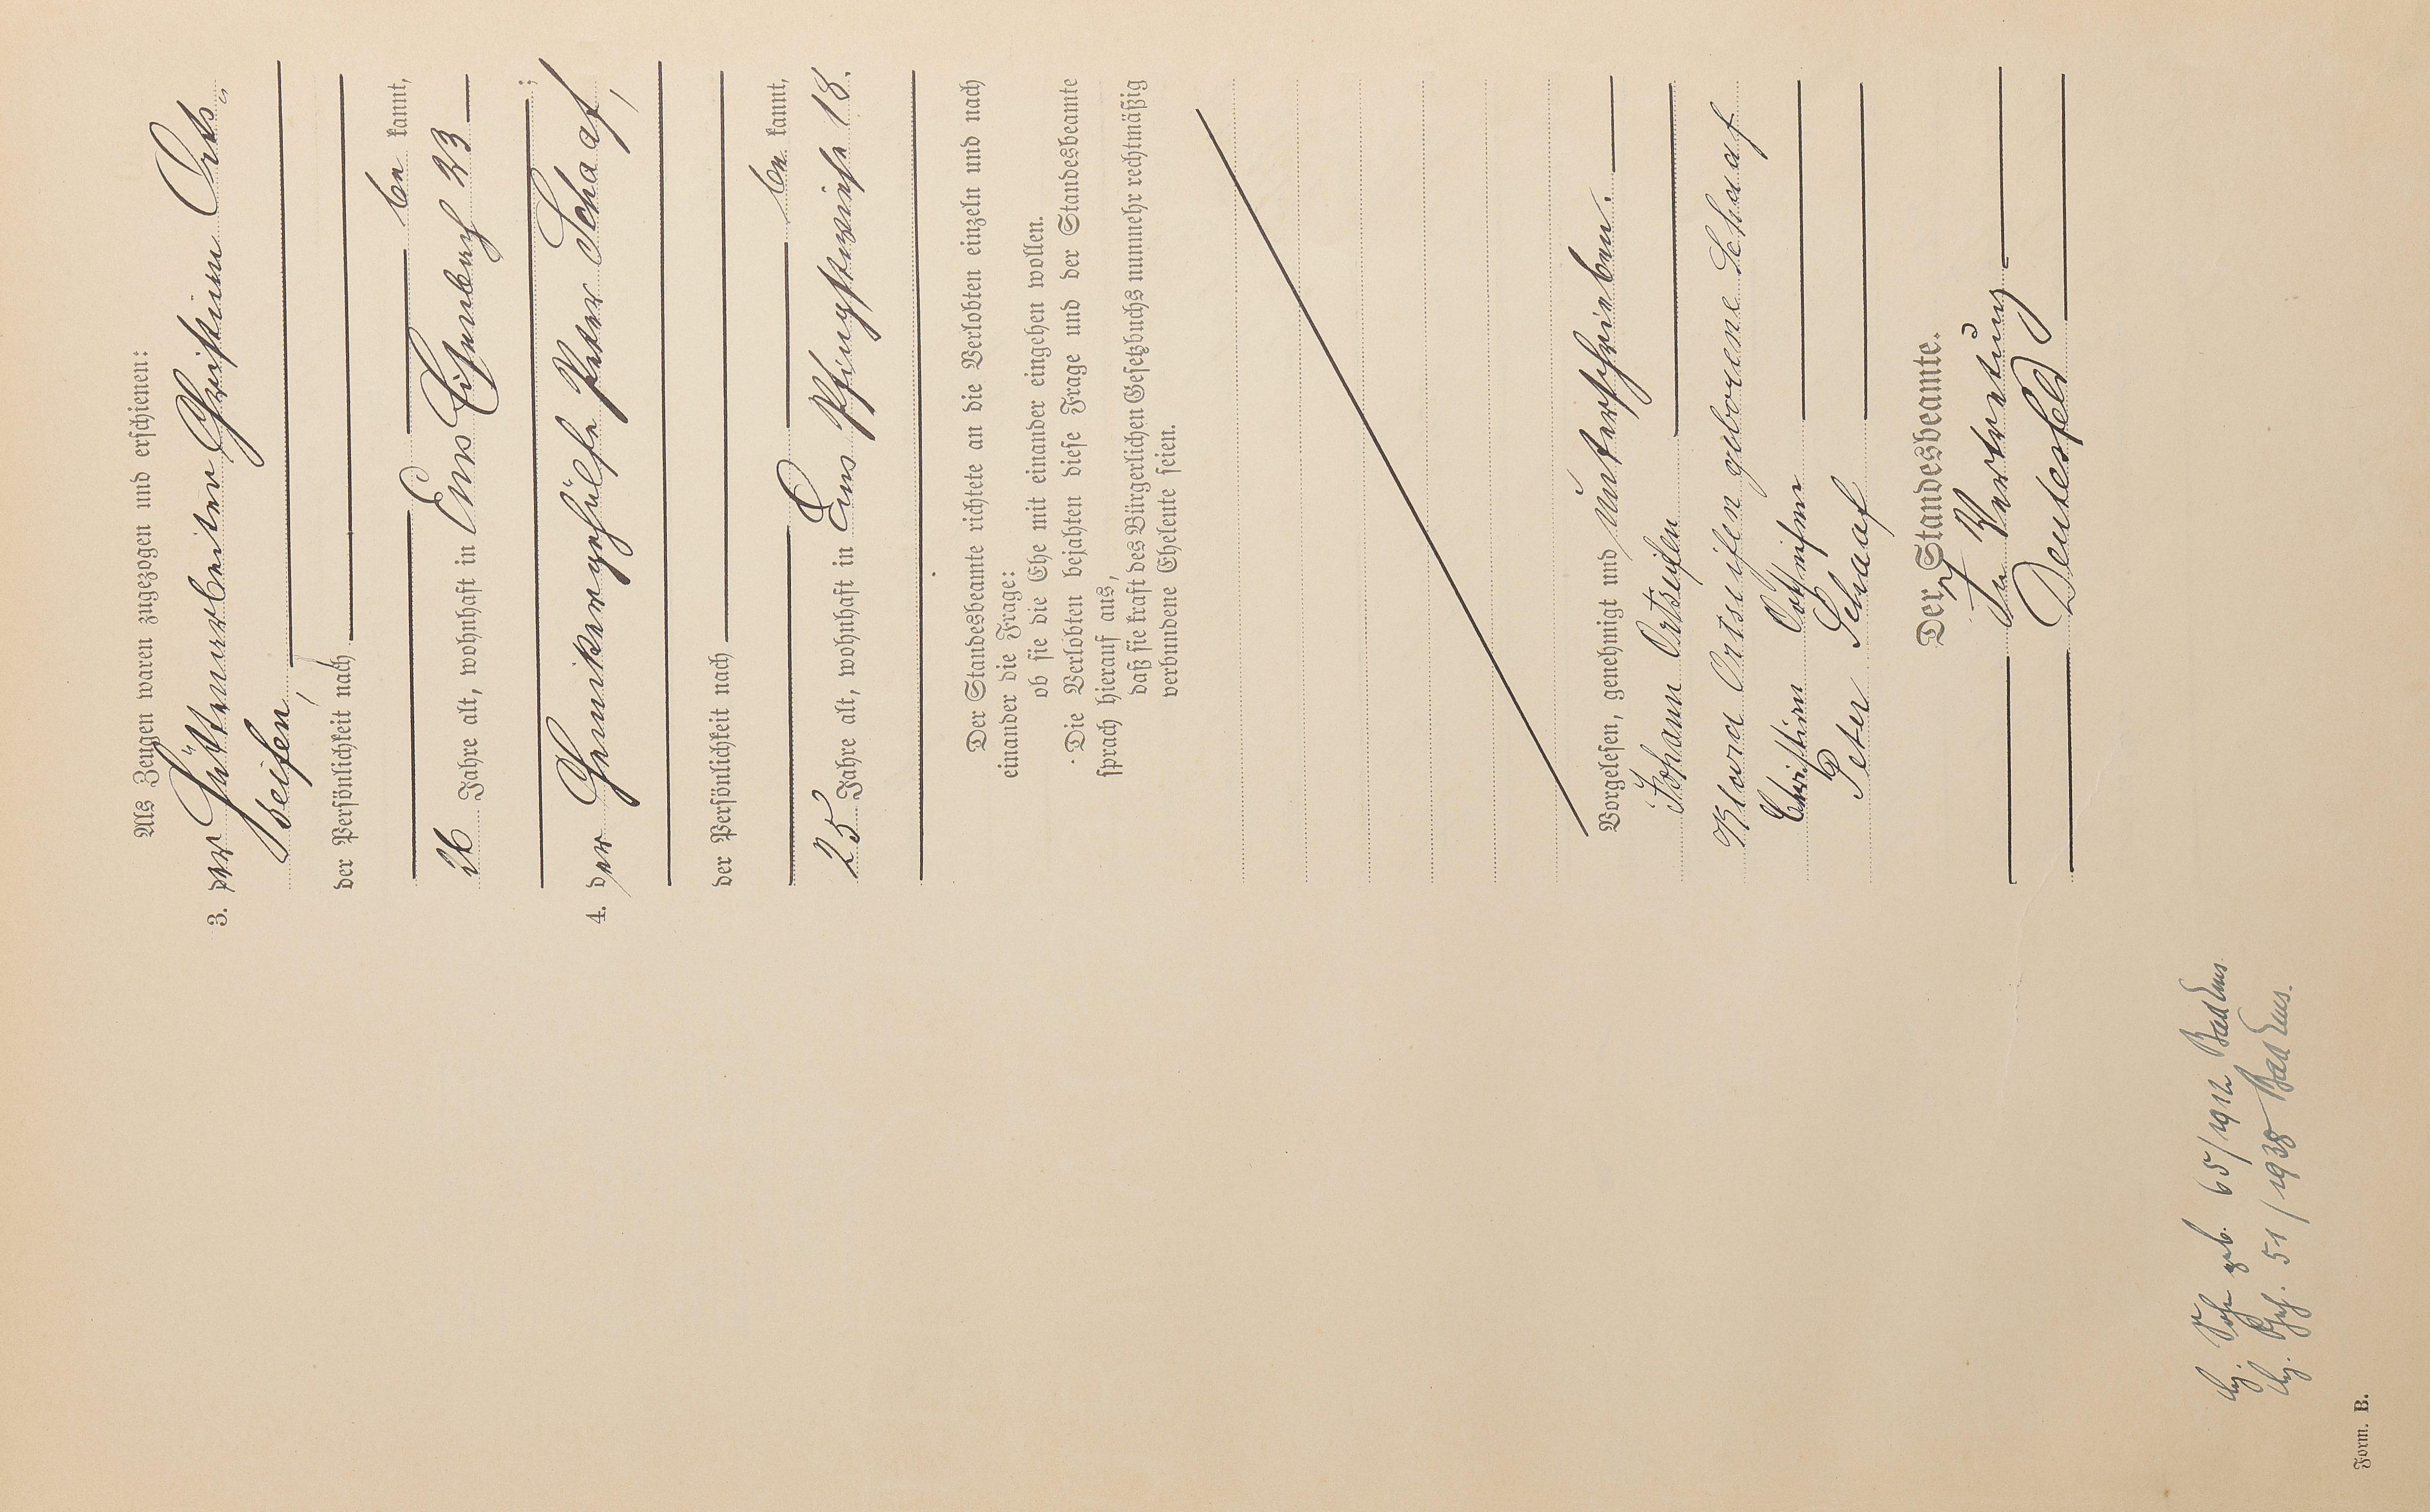 Als Zeugen waren zugezogen und erschienen:
3. der Hüttenarbeiter Christian Ort-
seifen,
der Persönlichkeit nach
be kannt,
26 Jahre alt, wohnhaft in Ems Eisenbach 23
;
4. der Chemikergehülfe Peter Schaaf,
der Persönlichkeit nach
be kannt,
25 Jahre alt, wohnhaft in Ems Pfingstwiese 18.
Der Standesbeamte richtete an die Verlobten einzeln und nach
einander die Frage:
ob sie die Ehe mit einander eingehen wollen.
Die Verlobten bejahten diese Frage und der Standesbeamte
sprach hierauf aus,
daß sie kraft des Bürgerlichen Gesetzbuchs nunmehr rechtmäßig
verbundene Eheleute seien.
Vorgelesen, genehmigt und unterschrieben.
Johann Ortseifen
Klara Ortseifen geborene Schaaf
Christian Ortseifen
Peter Schaaf
Der Standesbeamte.
In Vertretung
Deutesfeld
Sohn geb. 65/1912 Bad Ems.
51/1938 Bad Ems.
Form. B.